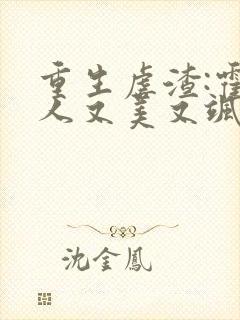 重生虐渣:霍
人又美又飒
沈金凤